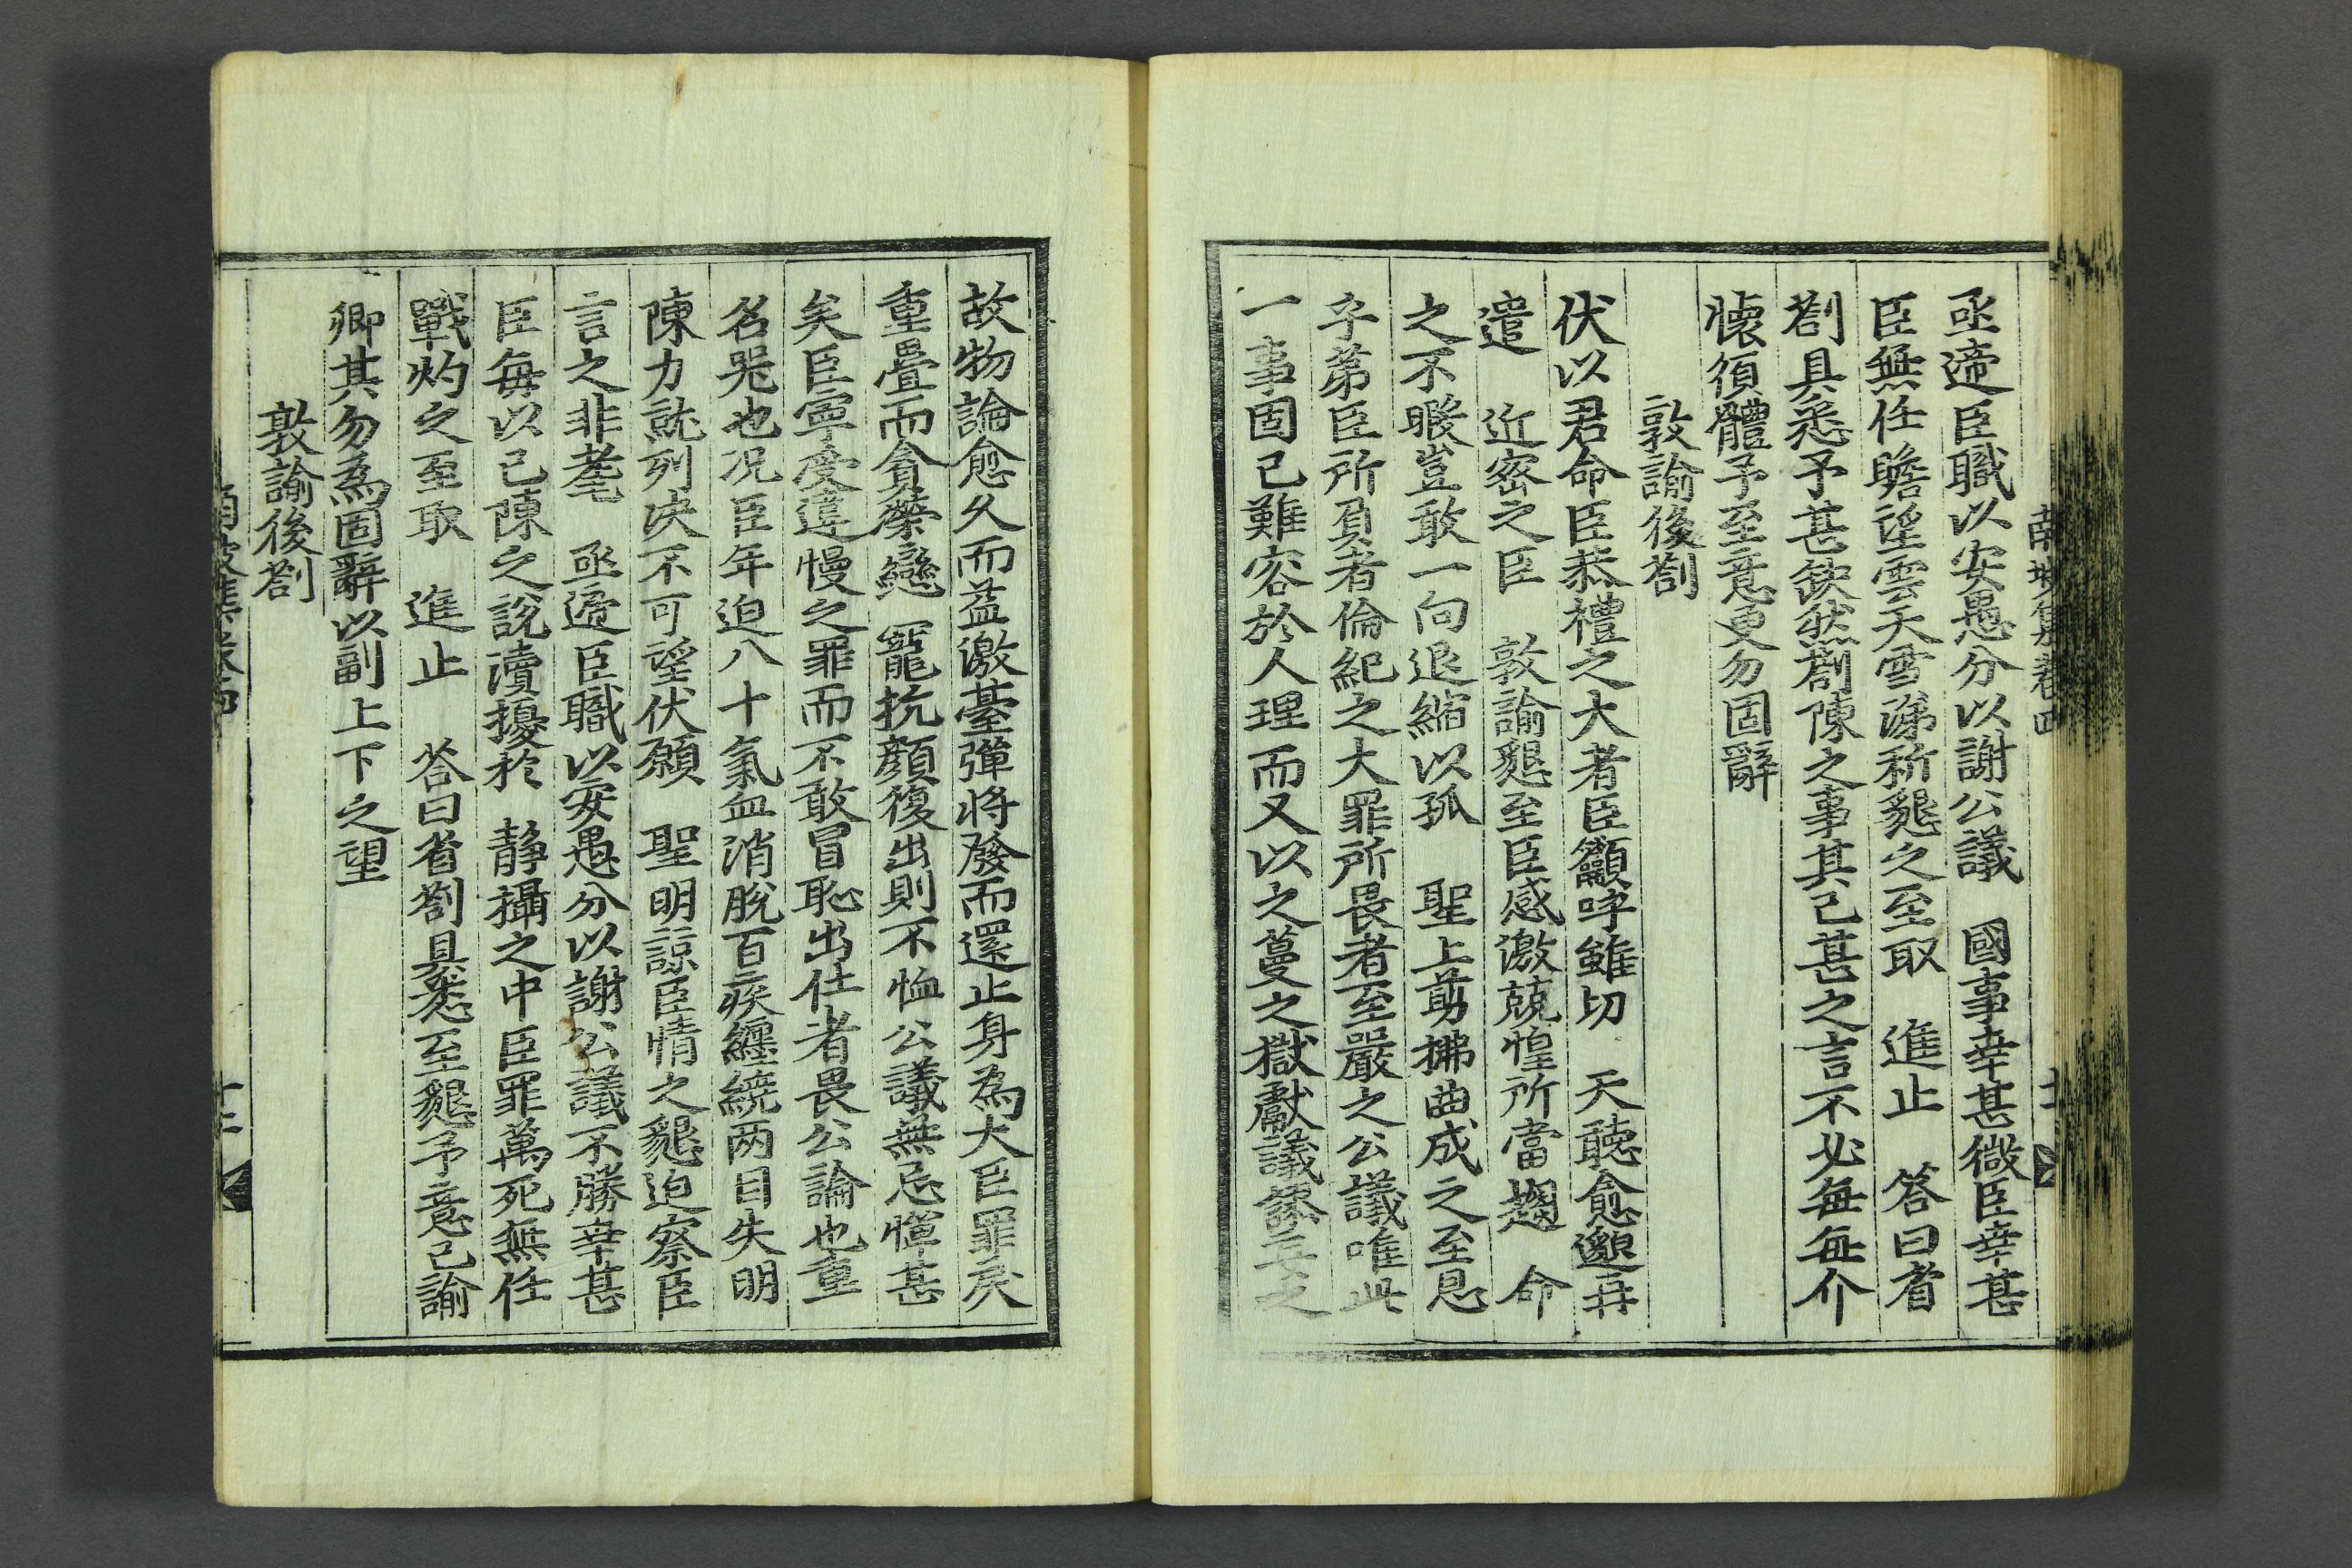 亟遞臣職以安愚分以謝公議　國事幸甚微臣幸甚
臣無任瞻望雲天雪涕祈懇之至取　進止　答曰省
劄具悉予甚缺然劄陳之事其已甚之言不必每每介
懷須體予至意更勿固辭
敦諭後劄
伏以君命臣恭禮之大者臣籲呼雖切　天聽愈邈再
遣　近密之臣　敦諭懇至臣感激兢惶所當趨　命
之不暇豈敢一向退縮以孤　聖上剪拂曲成之至恩
乎第臣所負者倫紀之大罪所畏者至嚴之公議唯此
一事固已難容於人理而又以之蔓之獄獻議
故物論愈久而益激臺彈將發而還止身為大臣罪戾
重疊而貪榮戀　寵抗顔復出則不恤公議無忌憚甚
矣臣寧受違慢之罪而不敢冒恥出仕者畏公論也重
名器也況臣年迫八十氣血消脫百疾纏繞两目失明
陳力就列決不可望伏願　聖明諒臣情之懇迫察臣
言之非耄　亟遞臣職以安愚分以謝公議不勝幸甚
臣每以已陳之說瀆擾於　静攝之中臣罪萬死無任
戰灼之至取　進止　答曰省劄具悉至懇予意已諭
卿其勿為固辭以副上下之望
敦諭後劄
十二